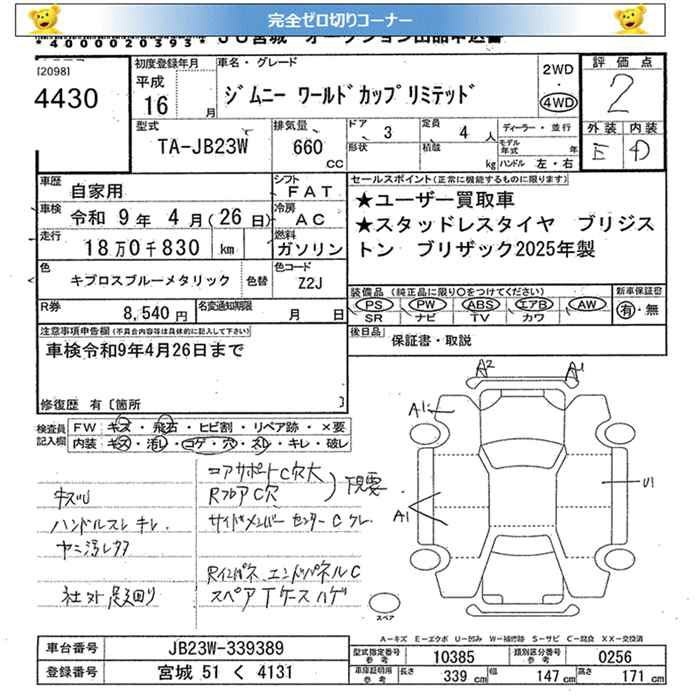 完全ゼロ切りコーナー
*4000020393* JU宮城 オークション出品申込書
[2098]
4430
初度登録年月
平成
16 月
車名・グレード
ジムニー ワールドカップリミテッド
2WD
・
4WD
評価点
2
外装 内装
E D
型式
TA-JB23W
排気量
660
CC
ドア
3
形状
定員
4 人
積載
kg
ディーラー・並行
モデル年式 年
ハンドル 左・右
車歴
自家用
シフト
FAT
車検
令和 9年 4月(26日)
冷房
AC
走行
18万0千830 km
燃料
ガソリン
色
キプロスブルーメタリック
色替
色コード
Z2J
R券
8,540円
名変通知期限
月 日
セールスポイント(正常に機能するものに限ります)
★ユーザー買取車
★スタッドレスタイヤ ブリジス
トン ブリザック2025年製
装備品(純正品に限り○をつけてください)
PS・PW・ABS・エアB・AW
SR ナビ TV カワ
新車保証書
有・無
後日品
保証書・取説
注意事項申告欄(不具合内容等は具体的に記入して下さい)
車検令和9年4月26日まで
修復歴 有〔箇所 〕
検査員
記入欄
FW キズ・飛石・ヒビ割・リペア跡・×要
内装 キズ・汚れ・コゲ・穴・スレ・キレ・破レ
コアサポートC穴大
RフロアC穴
下見要
キズU
ハンドルスレ キレ.
サイドメンバー センターC
Rインパネ エンドパネルC
社外足廻り
スペアTケース ハゲ
A2
A1
A1
A1
U1
スペア
A-キズ E-エクボ U-凹み W-補修跡 S-サビ C-腐食 XX-交換済
車台番号
JB23W-339389
登録番号
宮城 51 く 4131
型式指定番号
参考
10385
類別区分番号
参考
0256
車庫証明用
参考
長さ 339 cm
幅 147 cm
高さ 171 cm